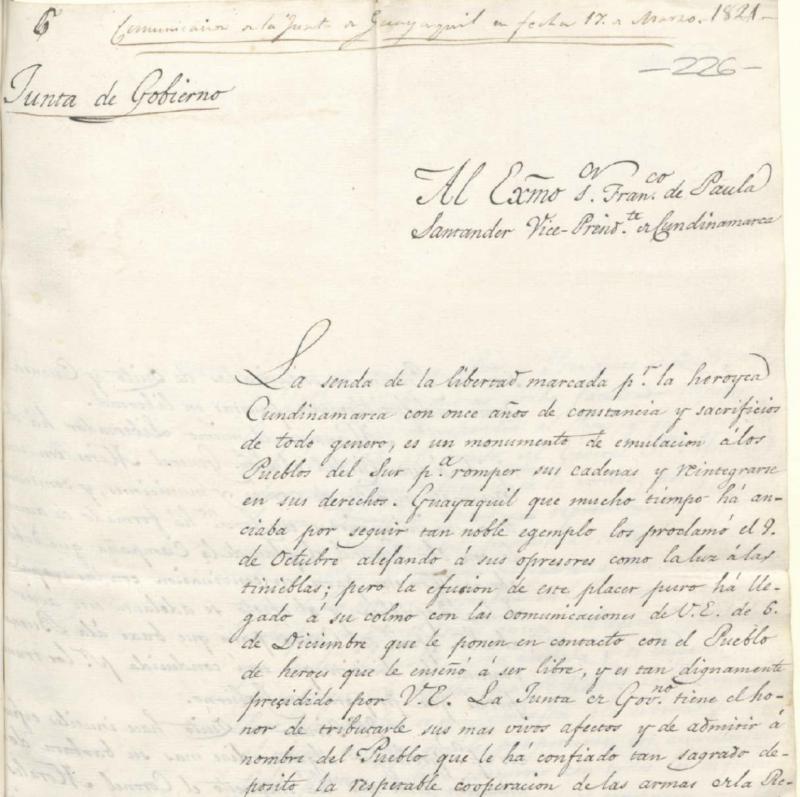 6
Comunicacion de la Junta de Guayaquil en fecha 17. de Marzo. 1821-
-226-
Junta de Gobierno
Al Exmo Sor. Franco. de Paula
Santander Vice-Presidte. de Cundinamarca
La senda de la libertad marcada pr. la heroyca
Cundinamarca con once años de constancia y sacrificios
de todo genero, es un monumento de emulacion á los
Pueblos del Sur pa. romper sus cadenas y reintegrarse
en sus derechos. Guayaquil que mucho tiempo há an-
ciaba por seguir tan noble egemplo los proclamó el 9.
de Octubre alejando á sus opresores como la luz á las
tinieblas; pero la efusion de este placer puro há lle-
gado á su colmo con las comunicaciones de V.E. de 6.
de Diciembre que le ponen en contacto con el Pueblo
de heroes que le enseñó á ser libre, y es tan dignamente
presidido por V.E. La Junta de Govno. tiene el ho-
nor de tributarle sus mas vivos afectos y de admitir á
nombre del Pueblo que le há confiado tan sagrado de-
posito la respetable cooperacion de las armas de la Re-